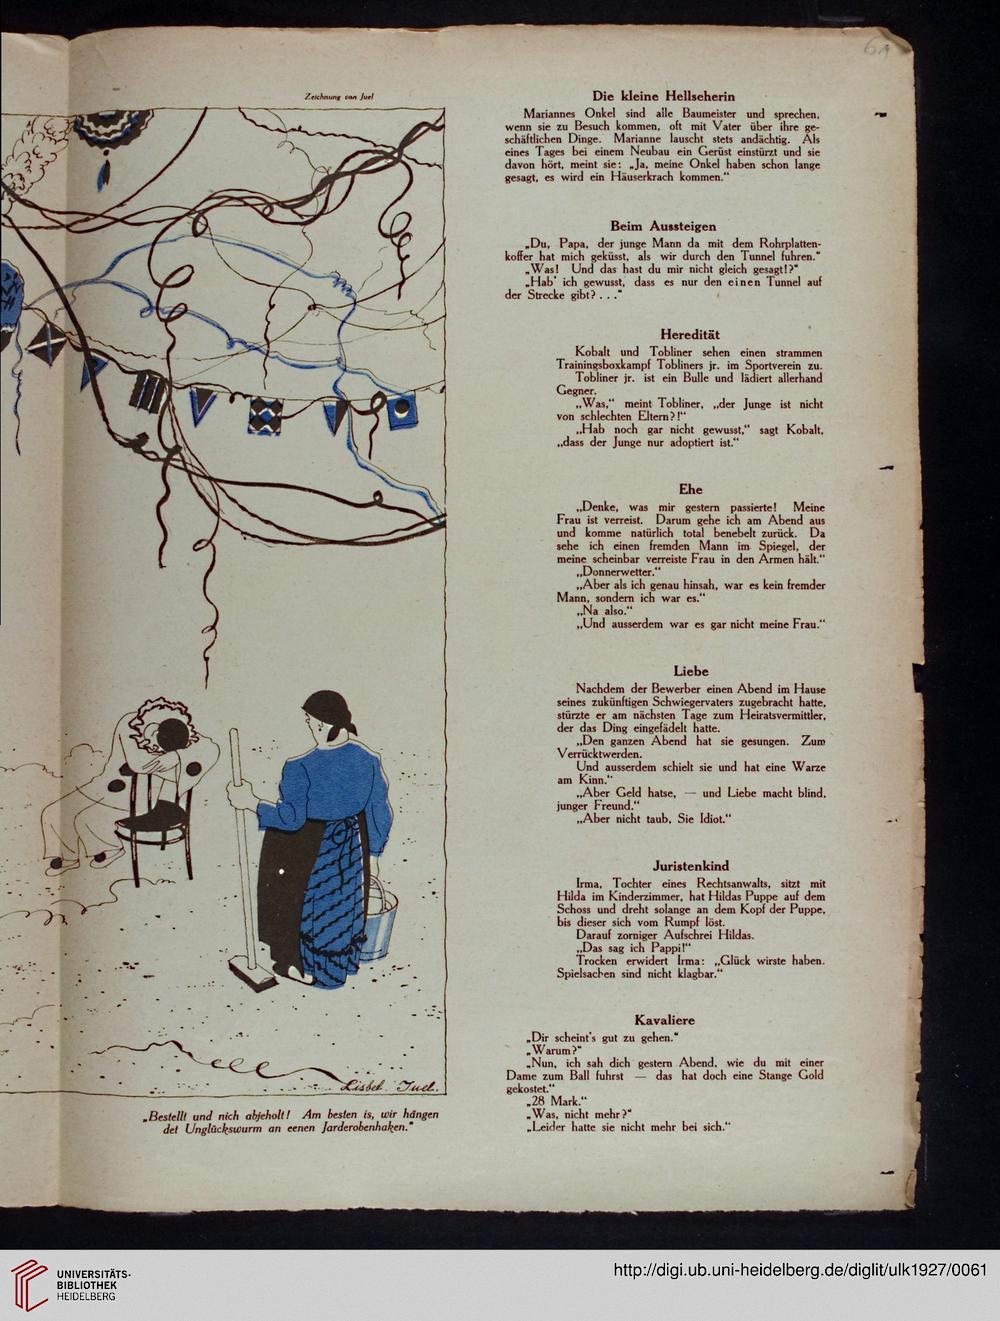 61
Zeichnung von Juel
Lisbet Juel.
„Bestellt und nich abjeholt! Am besten is, wir hängen
det Unglückswurm an eenen Jarderobenhaken."
Die kleine Hellseherin
Mariannes Onkel sind alle Baumeister und sprechen,
wenn sie zu Besuch kommen, oft mit Vater über ihre ge-
schäftlichen Dinge. Marianne lauscht stets andächtig. Als
eines Tages bei einem Neubau ein Gerüst einstürzt und sie
davon hört, meint sie: „Ja, meine Onkel haben schon lange
gesagt, es wird ein Häuserkrach kommen."
Beim Aussteigen
„Du, Papa, der junge Mann da mit dem Rohrplatten-
koffer hat mich geküsst, als wir durch den Tunnel fuhren."
„Was! Und das hast du mir nicht gleich gesagt!?"
„Hab' ich gewusst, dass es nur den einen Tunnel auf
der Strecke gibt? . . ."
Heredität
Kobalt und Tobliner sehen einen strammen
Trainingsboxkampf Tobliners jr. im Sportverein zu.
Tobliner jr. ist ein Bulle und lädiert allerhand
Gegner.
„Was," meint Tobliner, „der Junge ist nicht
von schlechten Eltern?!"
„Hab noch gar nicht gewusst," sagt Kobalt,
„dass der Junge nur adoptiert ist."
Ehe
„Denke, was mir gestern passierte! Meine
Frau ist verreist. Darum gehe ich am Abend aus
und komme natürlich total benebelt zurück. Da
sehe ich einen fremden Mann im Spiegel, der
meine scheinbar verreiste Frau in den Armen hält."
„Donnerwetter."
„Aber als ich genau hinsah, war es kein fremder
Mann, sondern ich war es."
„Na also."
„Und ausserdem war es gar nicht meine Frau."
Liebe
Nachdem der Bewerber einen Abend im Hause
seines zukünftigen Schwiegervaters zugebracht hatte,
stürzte er am nächsten Tage zum Heiratsvermittler,
der das Ding eingefädelt hatte.
„Den ganzen Abend hat sie gesungen. Zum
Verrücktwerden.
Und ausserdem schielt sie und hat eine Warze
am Kinn."
„Aber Geld hatse, — und Liebe macht blind,
junger Freund."
„Aber nicht taub, Sie Idiot."
Juristenkind
Irma, Tochter eines Rechtsanwalts, sitzt mit
Hilda im Kinderzimmer, hat Hildas Puppe auf dem
Schoss und dreht solange an dem Kopf der Puppe,
bis dieser sich vom Rumpf löst.
Darauf zorniger Aufschrei Hildas.
„Das sag ich Pappi!"
Trocken erwidert Irma: „Glück wirste haben.
Spielsachen sind nicht klagbar."
Kavaliere
„Dir scheint's gut zu gehen."
„Warum?"
„Nun, ich sah dich gestern Abend, wie du mit einer
Dame zum Ball fuhrst — das hat doch eine Stange Gold
gekostet."
„28 Mark."
„Was, nicht mehr?"
„Leider hatte sie nicht mehr bei sich."
UNIVERSITÄTS-
BIBLIOTHEK
HEIDELBERG
http://digi.ub.uni-heidelberg.de/diglit/ulk1927/0061